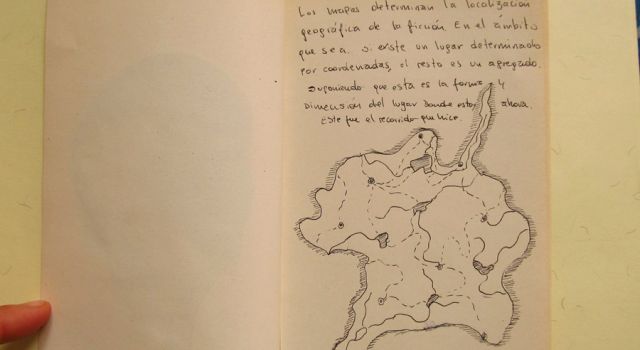 Los mapas determinan la localización
geográfica de la ficción. En el ámbito
que sea. si existe un lugar determinado
por coordenadas, el resto es un agregado.
suponiendo que esta es la forma y
dimensión del lugar donde estoy ahora.
Este fue el recorrido que hice.